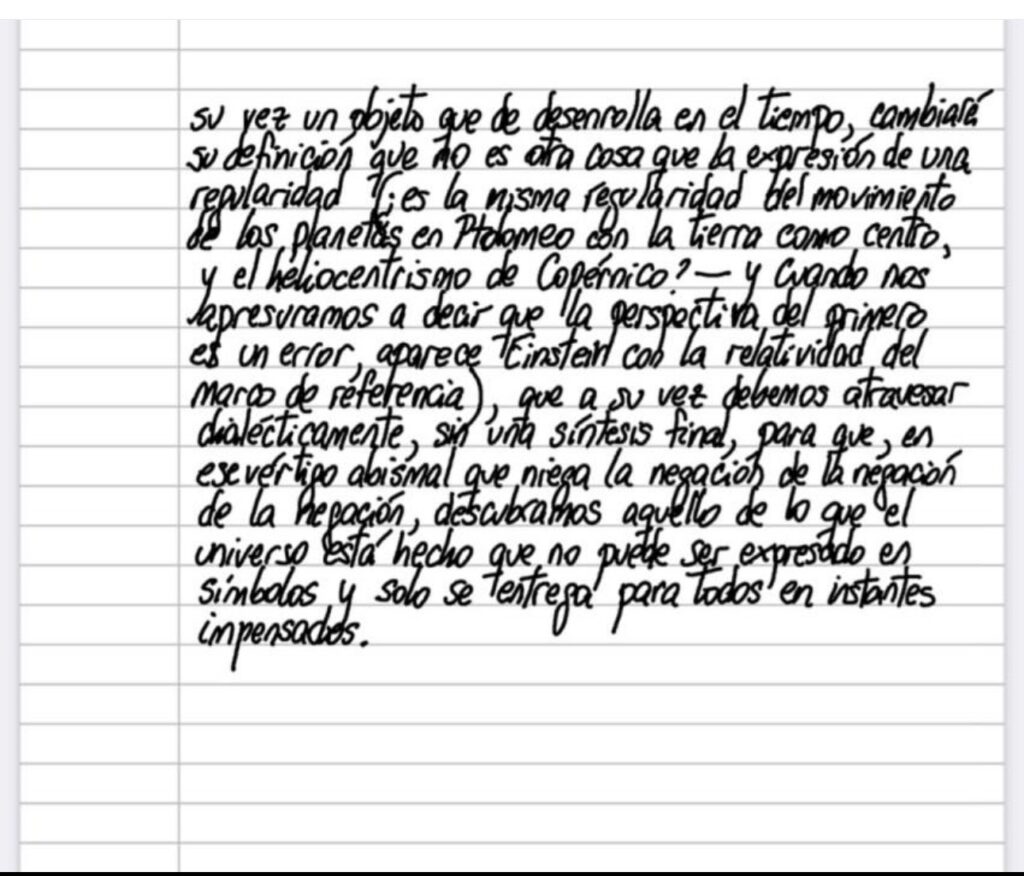 su vez un objeto que de desenrolla en el tiempo, cambiará
su definición, que no es otra cosa que la expresión de una
regularidad (¿es la misma regularidad del movimiento
de los planetas en Ptolomeo con la tierra como centro,
y el heliocentrismo de Copérnico? — y cuando nos
apresuramos a decir que la perspectiva del primero
es un error, aparece Einstein con la relatividad del
marco de referencia), que a su vez debemos atravesar
dialécticamente, sin una síntesis final, para que, en
ese vértigo abismal que niega la negación de la negación
de la negación, descubramos aquello de lo que el
universo está hecho que no puede ser expresado en
símbolos y solo se entrega para todos en instantes
impensados.